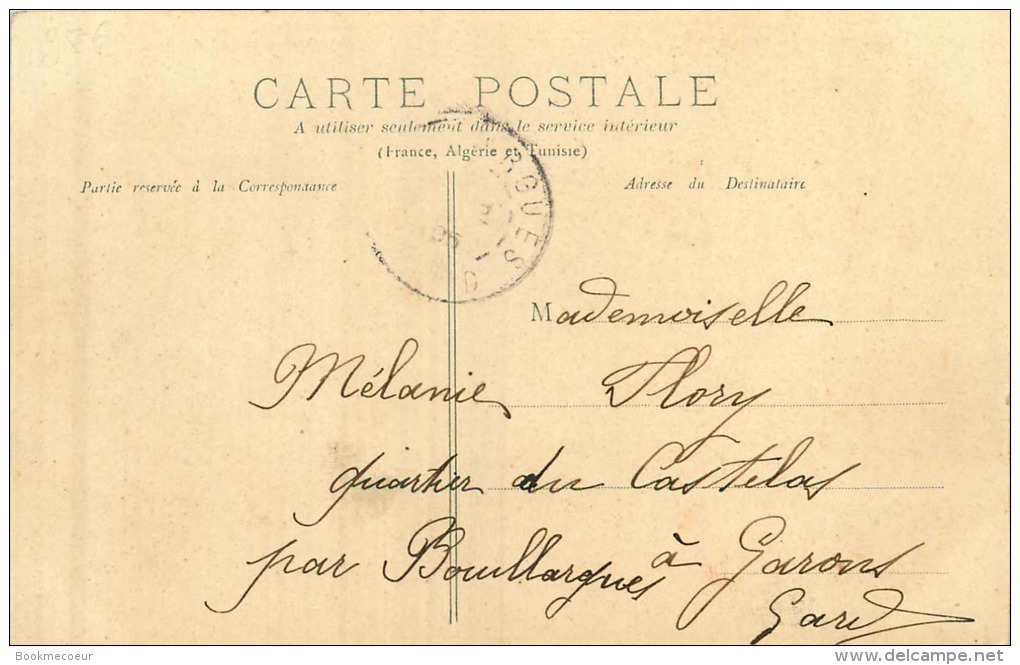 CARTE POSTALE
A utiliser seulement dans le service intérieur
(France, Algérie et Tunisie)
Partie reservée à la Correspondance
Adresse du Destinataire
RGUES
Mademoiselle
Mélanie Flory
quartier du Castelas
par Bouillargues à Garons
Gard
Bookmecoeur
www.delcampe.net